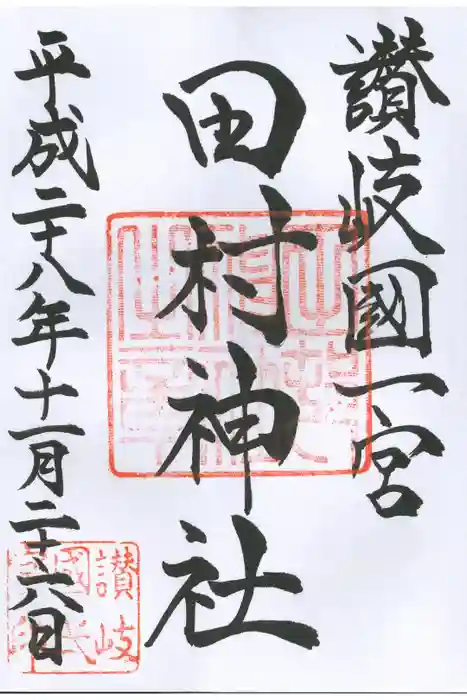 讃岐國一宮
田村神社
平成二十八年十一月二十六日